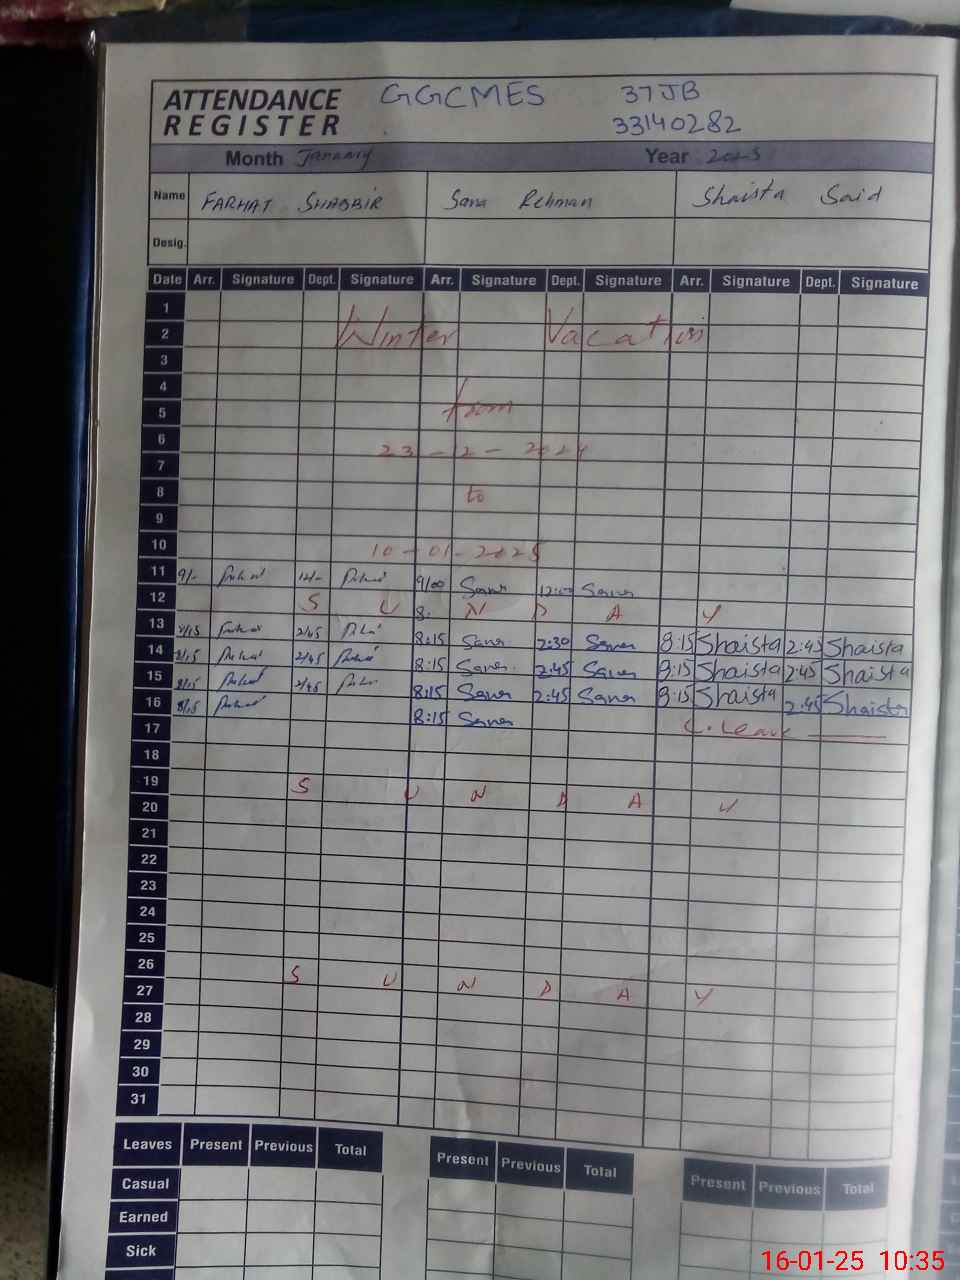 ATTENDANCE REGISTER GGCMES 37JB
33140282
Month January Year 2025
Name FARHAT SHABBIR Sana Rehman Shaista Said
Desig.
Date Arr. Signature Dept. Signature Arr. Signature Dept. Signature Arr. Signature Dept. Signature
1
2 Winter Vacation
3
4
5 from
6
7 23-12-2024
8 to
9
10 10-01-2025
11 9/- 12/- 9/00 Sana 12:00 Sana
12 S U N D A Y
8:
13 8/15 2/45 8:15 Sana 2:30 Sana 8:15 Shaista 2:45 Shaista
14 8/15 2/45 8:15 Sana 2:45 Sana 8:15 Shaista 2:45 Shaista
15 8/15 2/45 8:15 Sana 2:45 Sana 8:15 Shaista 2:45 Shaista
16 8/15 8:15 Sana C. Leave
17
18
19 S U N D A Y
20
21
22
23
24
25
26 S U N D A Y
27
28
29
30
31
Leaves Present Previous Total Present Previous Total Present Previous Total
Casual
Earned
Sick
16-01-25 10:35